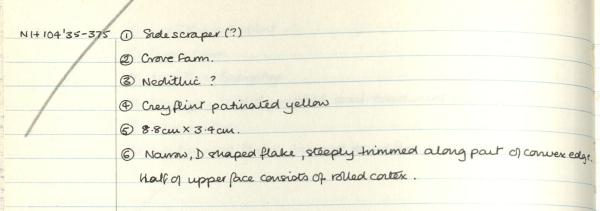 NH 104'35-375 ① Side scraper (?)
② Grove Farm.
③ Neolithic ?
④ Grey flint patinated yellow
⑤ 8.8cm × 3.4cm.
⑥ Narrow, D shaped flake, steeply trimmed along part of convex edge.
Half of upper face consists of rolled cortex.